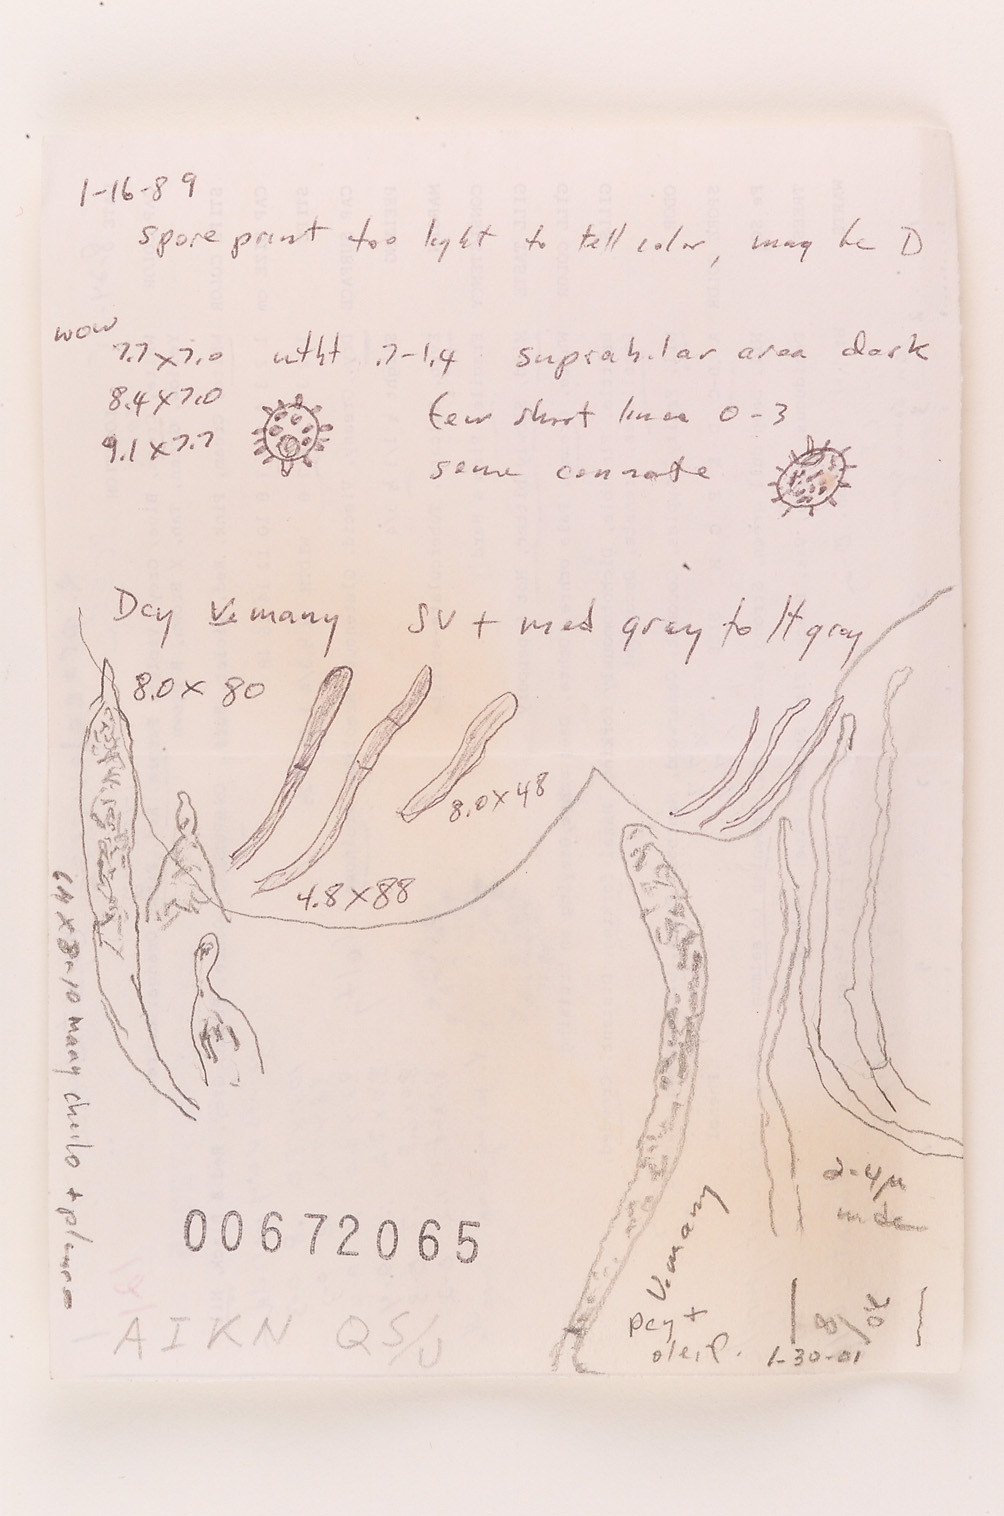 1-16-89
spore print too light to tell color, may be D
wow
7.7 x 7.0 wtht .7-1.4 suprahilar area dark
8.4 x 7.0 few short lines 0-3
9.1 x 7.7 some connate
Dcy V. many SV + med gray to lt gray
8.0 x 80
8.0 x 48
4.8 x 88
64 x 8-10 many cheilo + pleuro
2-4µ
wide
V. many
Dcy +
oleif.
00672065
AIKN QS/U
8/20
1-30-01